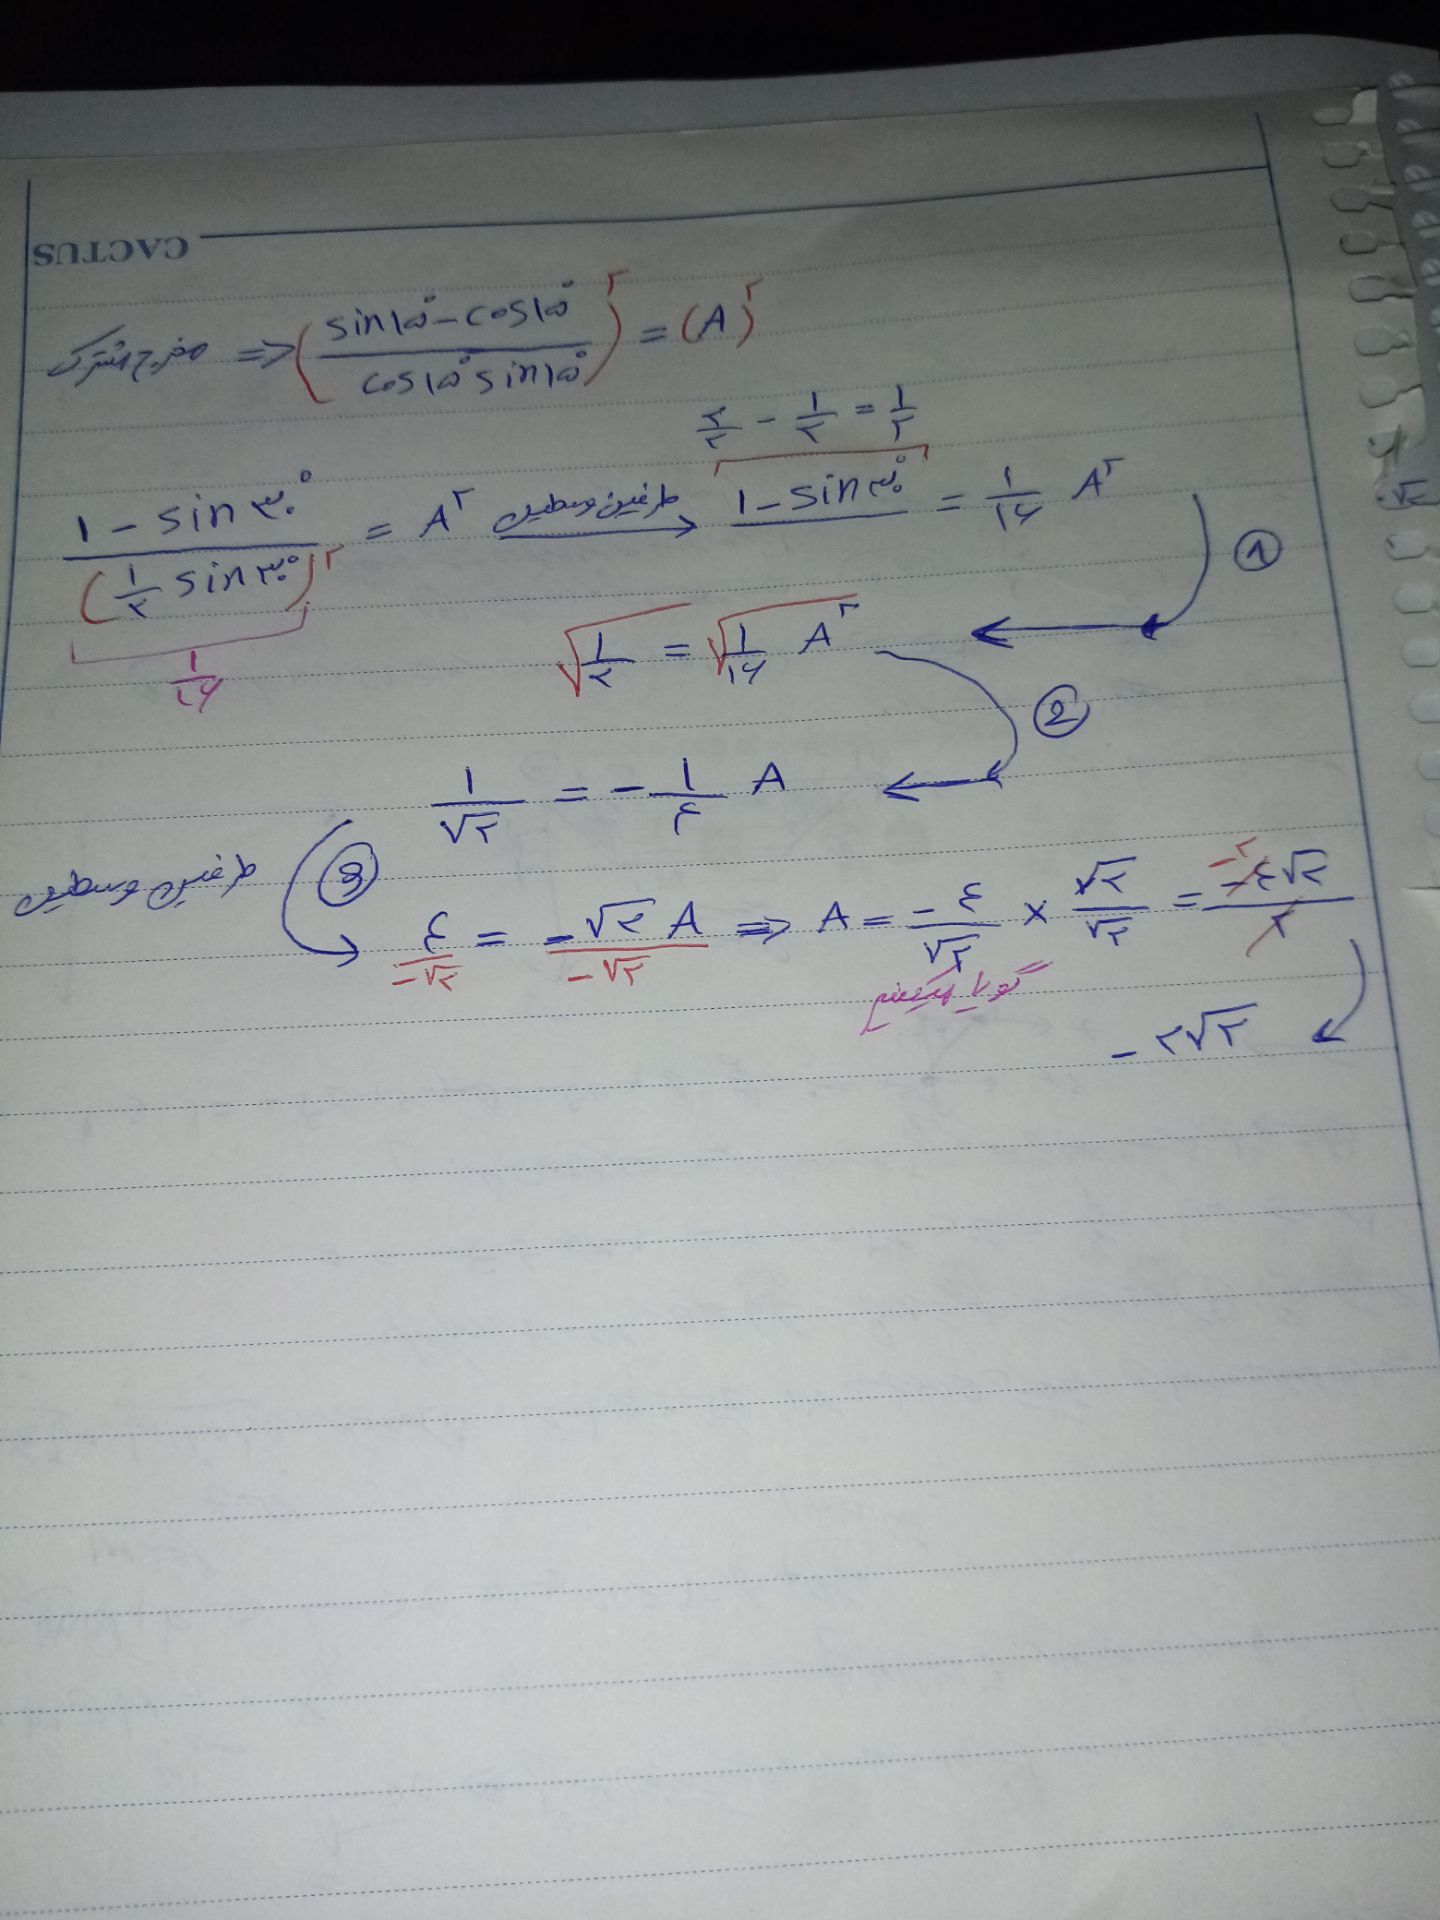 CACTUS
مخرج مشترک => (sin۱۵° - cos۱۵° / cos۱۵° sin۱۵°)^۲ = (A)^۲
۲/۲ - ۱/۲ = ۱/۲
۱ - sin۳۰° / (۱/۲ sin۳۰°)^۲ = A^۲ طرفین وسطین → ۱ - sin۳۰° = ۱/۱۶ A^۲ ①
۱/۱۶
√۱/۲ = √۱/۱۶ A^۲ ②
۱/√۲ = - ۱/۴ A
طرفین وسطین ③
۴/-√۲ = -√۲ A/-√۲ => A = -۴/√۲ × √۲/√۲ = -۴√۲/۲ -۲
گویا میکنیم
- ۲√۲